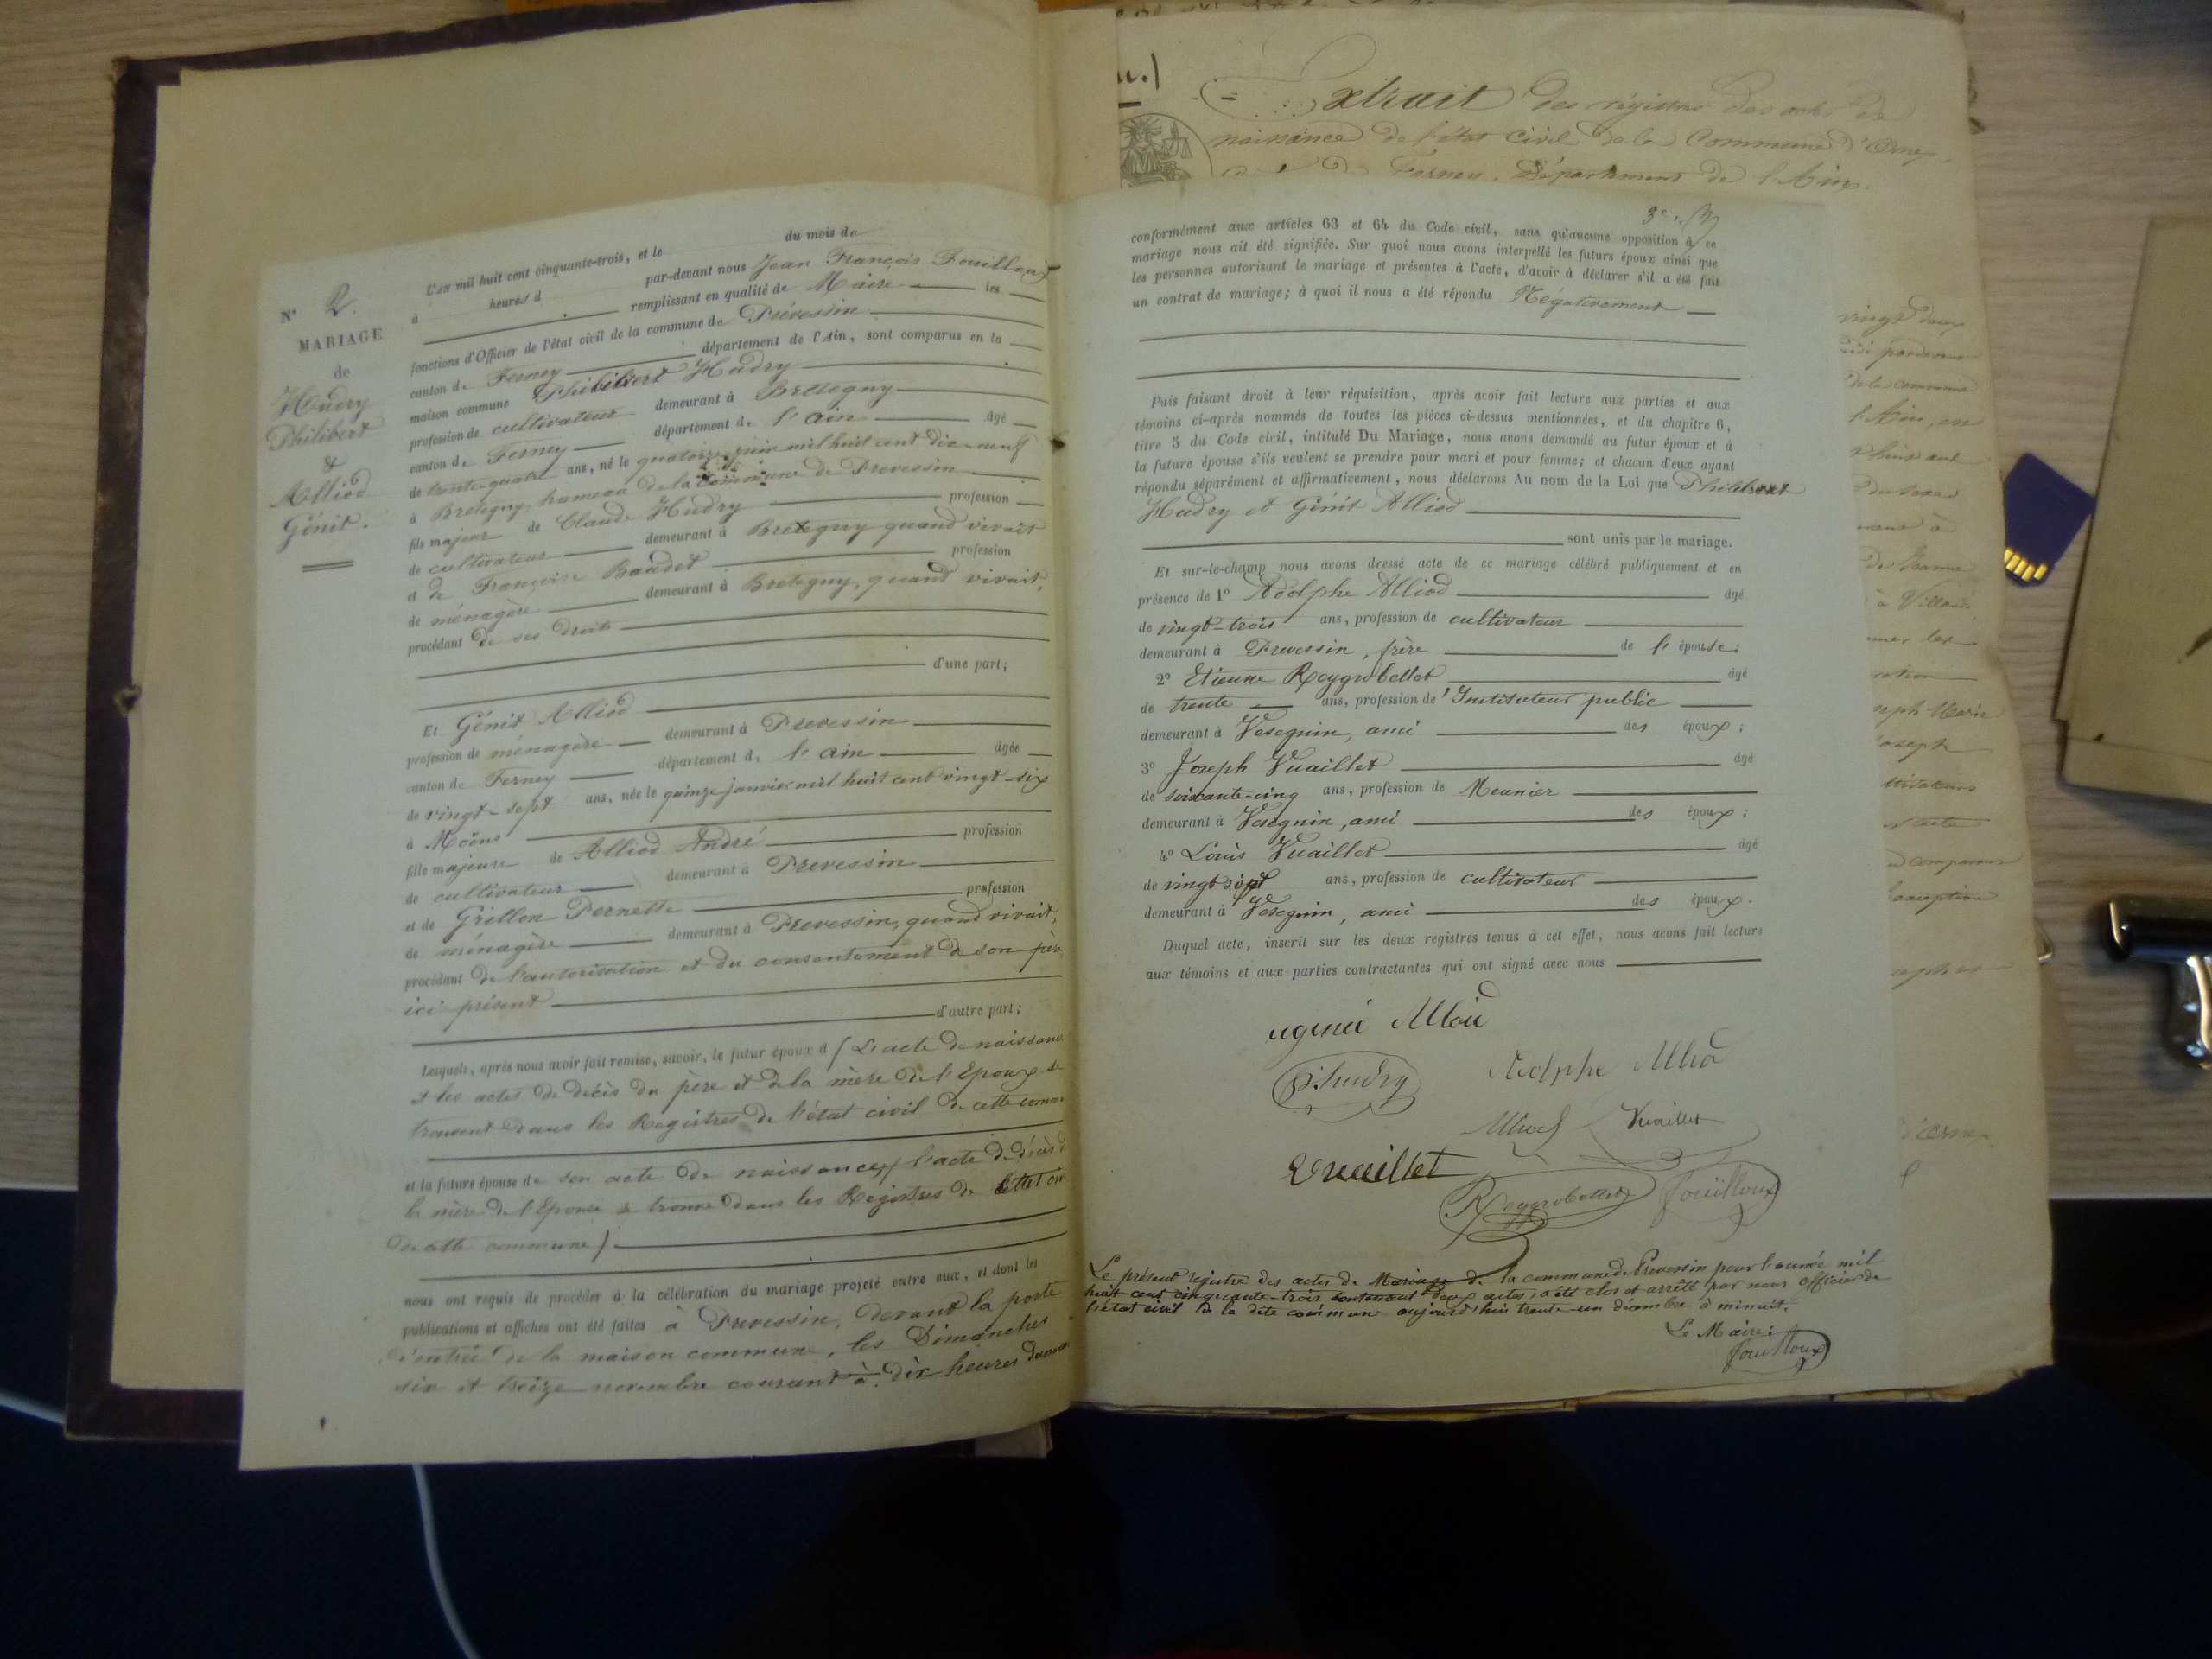 N° 2.
MARIAGE
de
Hudry
Philibert
&
Alliod
Génit.
L'an mil huit cent cinquante-trois, et le du mois de
à heures d par-devant nous Jean François Fouilloux
remplissant en qualité de Maire les
fonctions d'Officier de l'état civil de la commune de Prévessin
canton de Ferney département de l'Ain, sont comparus en la
maison commune Philibert Hudry
profession de cultivateur demeurant à Brétegny
canton de Ferney département de l'ain âgé
de trente-quatre ans, né le quatorze juin mil huit cent dix-neuf
à Bretegny, hameau de la commune de Prevessin
fils majeur de Claude Hudry profession
de cultivateur demeurant à Bretegny quand vivait
et de Françoise Baudet profession
de ménagère demeurant à Bretegny, quand vivait,
procédant de ses droits
d'une part;
Et Génit Alliod
profession de ménagère demeurant à Prevessin
canton de Ferney département de l'ain âgée
de vingt-sept ans, née le quinze janvier mil huit cent vingt-six
à Moëns
fille majeure de Alliod André profession
de cultivateur demeurant à Prevessin
et de Grillon Pernette profession
de ménagère demeurant à Prevessin, quand vivait,
procédant de l'autorisation et du consentement de son père
ici présent
d'autre part;
Lesquels, après nous avoir fait remise, savoir, le futur époux d (L'acte de naissance
et les actes de décès du père et de la mère de l'Epoux se
trouvent dans les Registres de l'état civil de cette comm
et la future épouse de son acte de naissance, (l'acte de décès d
la mère de l'Epouse se trouve dans les Registres de l'état civ
de cette commune)
nous ont requis de procéder à la célébration du mariage projeté entre eux, et dont les
publications et affiches ont été faites à Prevessin, devant la porte
d'entrée de la maison commune, les Dimanches
six et treize novembre courant à dix heures du
Extrait des régistres des actes de
naissance de l'état civil de la Commune d'Ornex
Ferney, Département de l'Ain.
3e
conformément aux articles 63 et 64 du Code civil, sans qu'aucune opposition à ce
mariage nous ait été signifiée. Sur quoi nous avons interpellé les futurs époux ainsi que
les personnes autorisant le mariage et présentes à l'acte, d'avoir à déclarer s'il a été fait
un contrat de mariage; à quoi il nous a été répondu Négativement
Puis faisant droit à leur réquisition, après avoir fait lecture aux parties et aux
témoins ci-après nommés de toutes les pièces ci-dessus mentionnées, et du chapitre 6,
titre 5 du Code civil, intitulé Du Mariage, nous avons demandé au futur époux et à
la future épouse s'ils veulent se prendre pour mari et pour femme; et chacun d'eux ayant
répondu séparément et affirmativement, nous déclarons Au nom de la Loi que Philibert
Hudry et Génit Alliod
sont unis par le mariage.
Et sur-le-champ nous avons dressé acte de ce mariage célébré publiquement et en
présence de 1° Adolphe Alliod âgé
de vingt-trois ans, profession de cultivateur
demeurant à Prevessin, frère de l'épouse;
2° Etienne Reygrobellet âgé
de trente ans, profession de l'Instituteur public
demeurant à Vesegnin, ami des époux;
3° Joseph Vuaillet âgé
de soixante-cinq ans, profession de Meunier
demeurant à Vesegnin, ami des époux;
4° Louis Vuaillet âgé
de vingt-sept ans, profession de cultivateur
demeurant à Vesegnin, ami des époux.
Duquel acte, inscrit sur les deux registres tenus à cet effet, nous avons fait lecture
aux témoins et aux parties contractantes qui ont signé avec nous
eugenie Alliod
P. Hudry
Adolphe Alliod
Alliod Vuaillet
Vuaillet
Reygrobellet Fouilloux
Le présent registre des actes de Mariage de la commune de Prevessin pour l'année mil
huit cent cinquante-trois contenant deux actes, a été clos et arrêté par nous officier de
l'état civil de la dite commune aujourd'hui trente-un décembre à minuit.
Le Maire:
Fouilloux